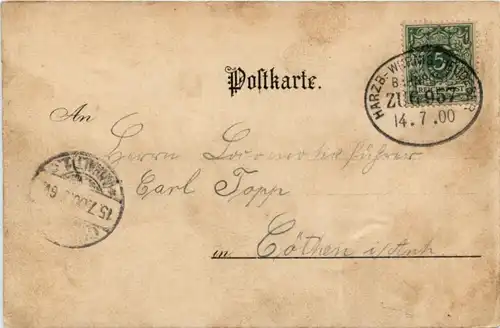 5
HARZB.-
ZUG 957
14.7.00
Postkarte.
An
Herrn Locomotivführer
Carl Topp
15.7.00.
in Cöthen i/Anh